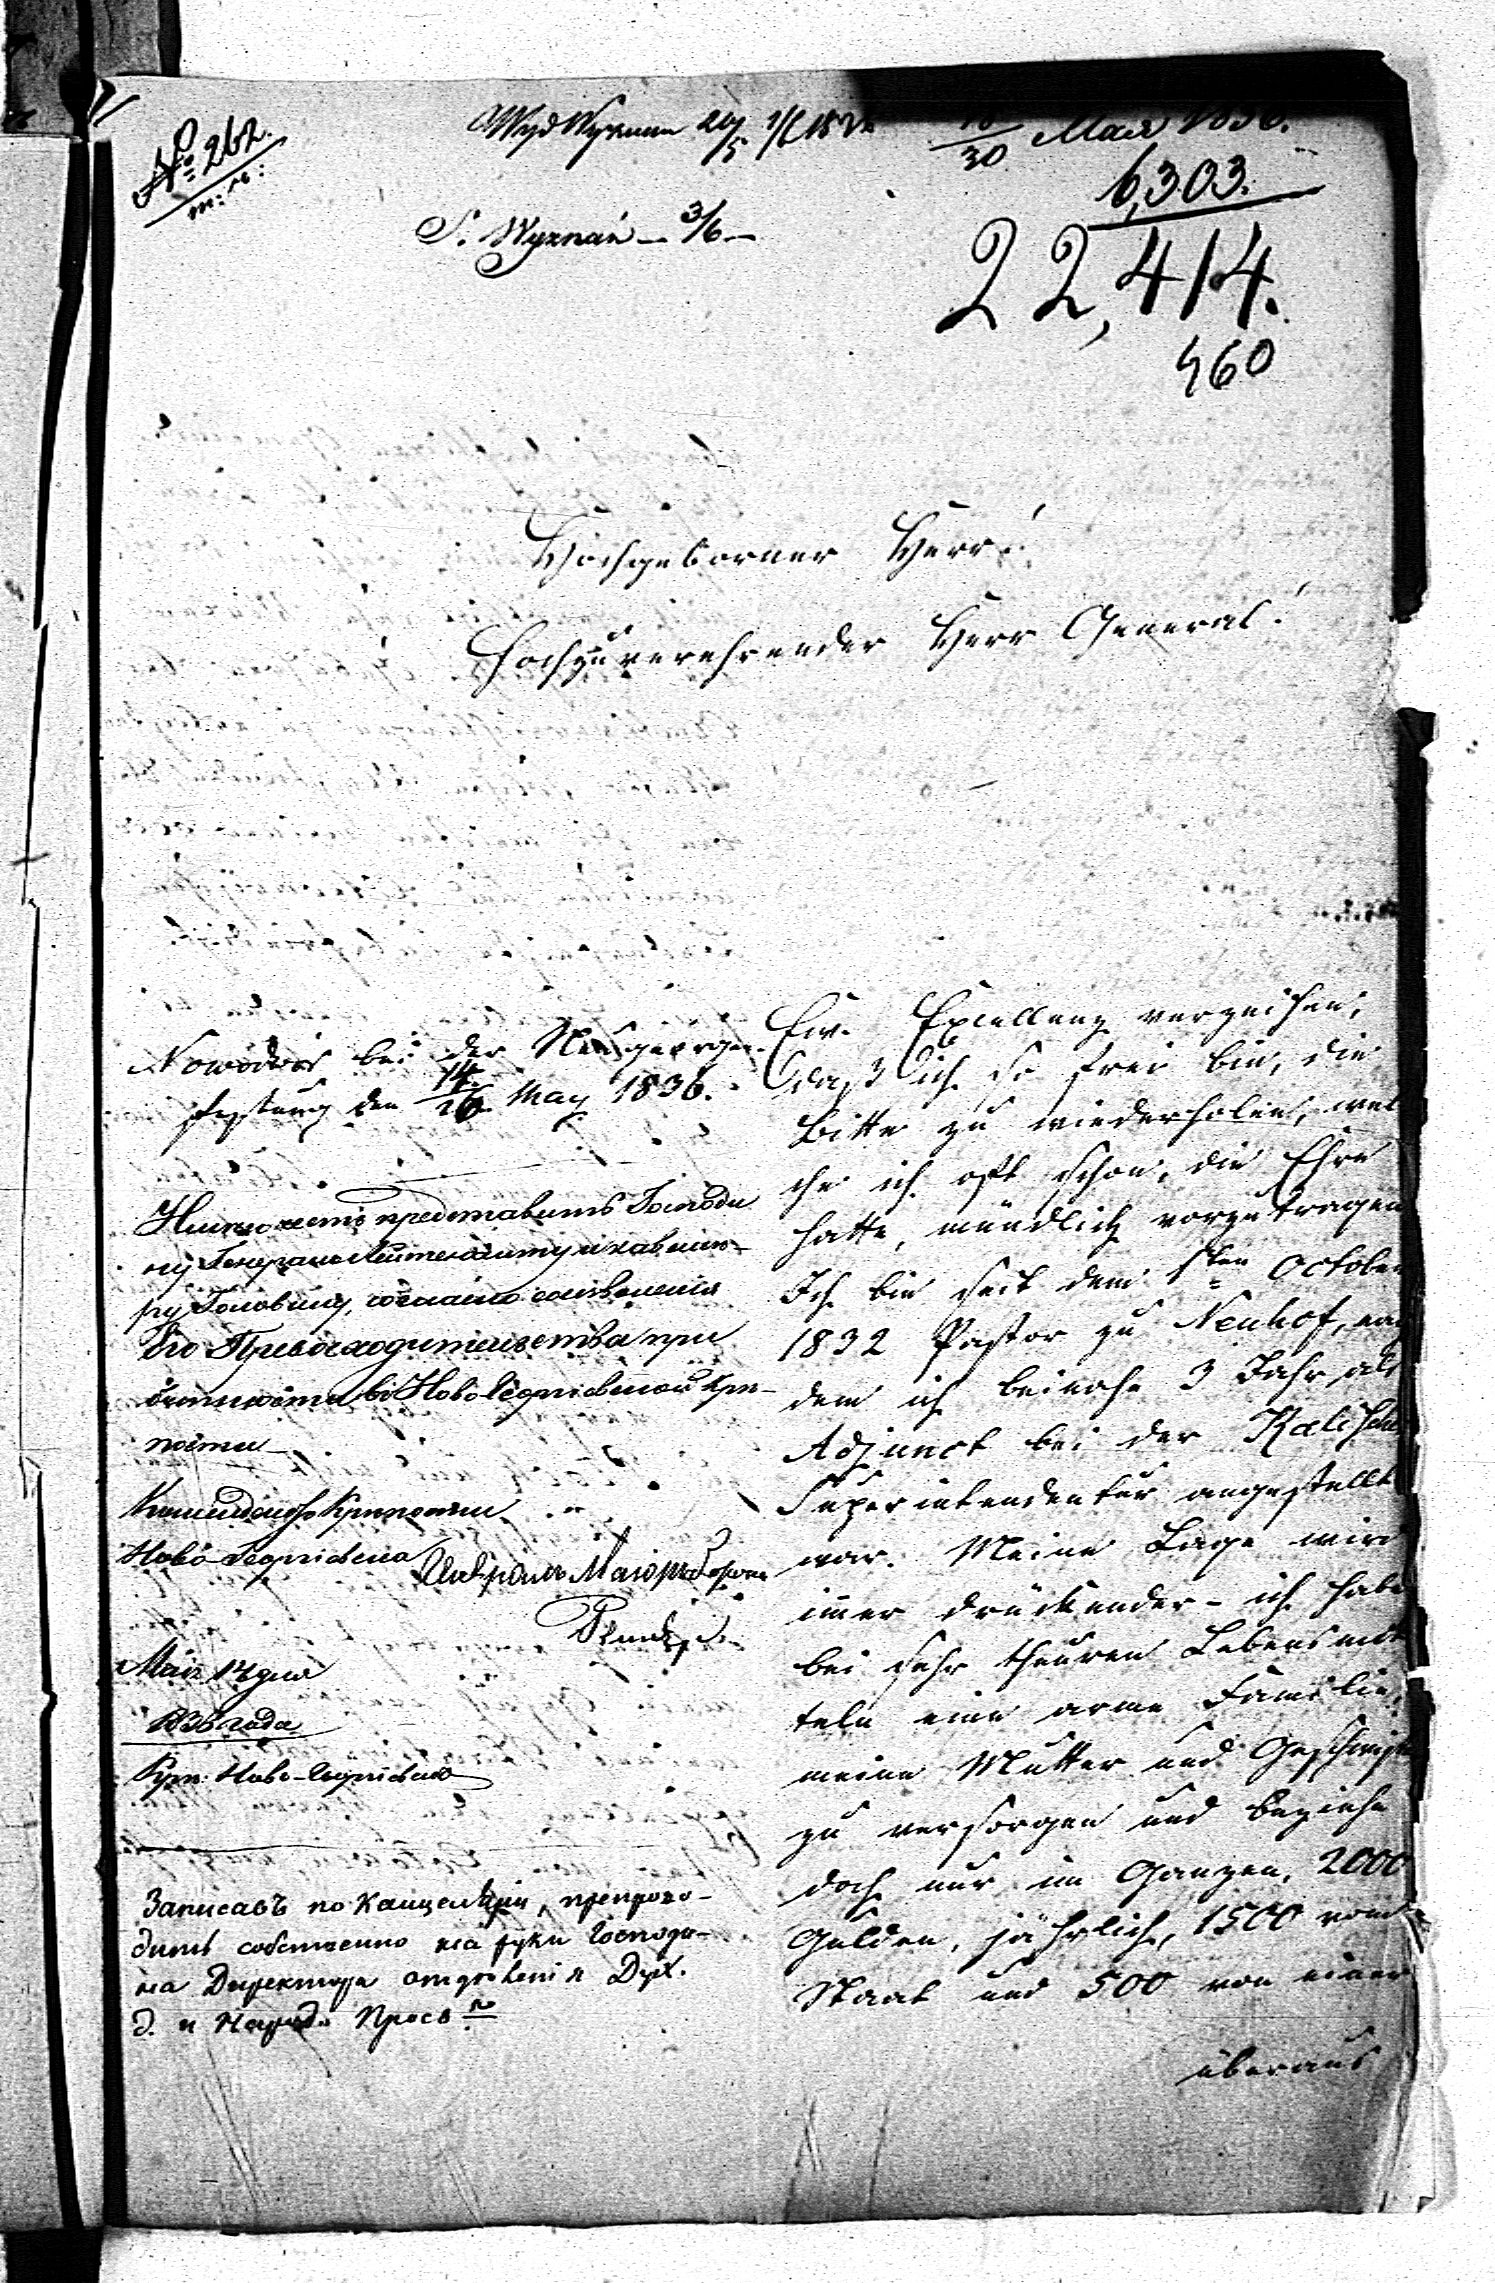 № 262.
Wyd Wyznan
30 Мая 1836.
6,303.
S. Wyznań — 3/6 —
22,414.
460
Hochgeborner Herr!
Hochzuverehrender Herr General!
Nowodwor bei der Neugeorgen-
festung den 14/26 May 1836.
Ew. Excellenz verzeihen,
daß ich so frei bin, die
Bitte zu wiederholen, wel
che ich oft schon, die Ehre
hatte, mündlich vorzutragen
Ich bin seit dem 1sten October
1832 Pastor zu Neuhof, nach
dem ich beinahe 3 Jahr als
Adjunct bei der Kalischer
Superintendentur angestellt
war. Meine Lage wird
immer drückender - ich habe
bei sehr theuren Lebensmit
teln eine arme Familie,
meine Mutter und Geschwister
zu versorgen und beziehe
doch nur im Ganzen, 2000
Gulden, jährlich, 1500 vom
Staat und 500 von einer
überaus
представить Господи
ну Генералъ Лейтенанту и кавале
ру Головину, согласно
Его Превосходительства при
въ Ново-Георгіевской Крѣ-
пости
Комендантъ Крѣпости
Ново-Георгіевска
Маіоръ
Мая 14 дня
1836 года
Крѣп: Ново-Георгіевскъ
Записавъ по Канцеляріи, препрово-
дить собственно на руки Господи-
на Директора отдѣленія Дух.
д. и Народ. Просв.